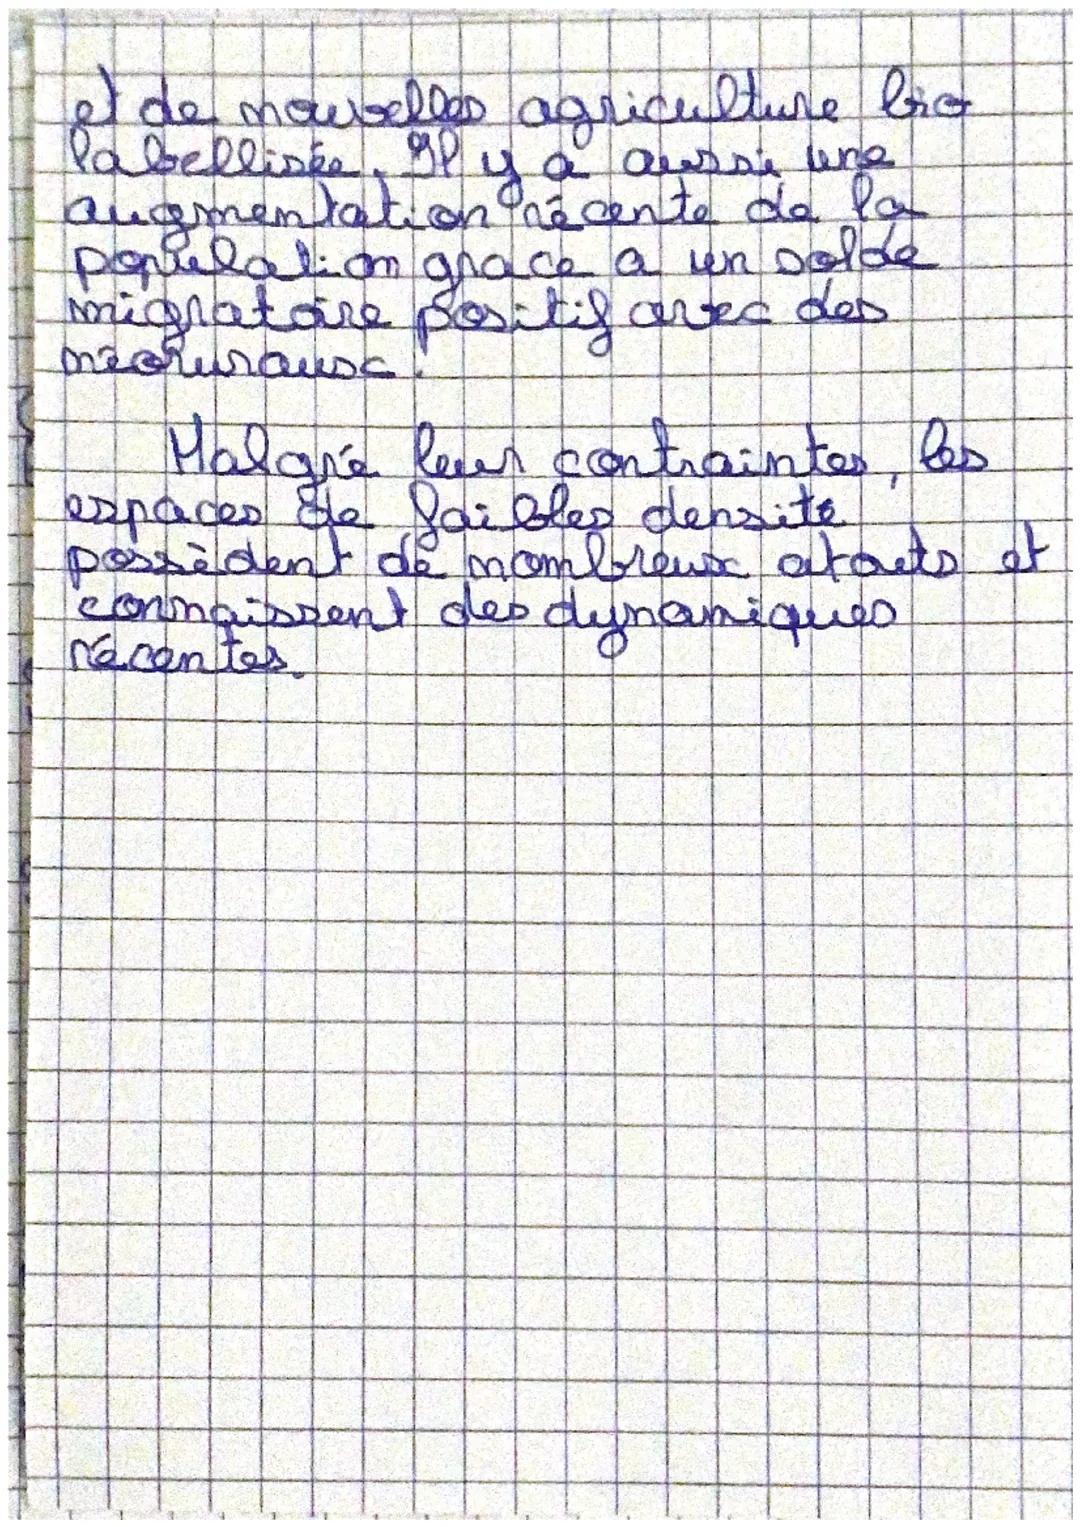 et de nouvelles agriculture bio
labellisée. Il y a aussi une
augmentation récente de la
population grace a un solde
migratoire positif avec des
néoruraux.
Malgré leur contraintes, les
espaces de faibles densité
possèdent de nombreux atouts et
connaissent des dynamiques
récentes.